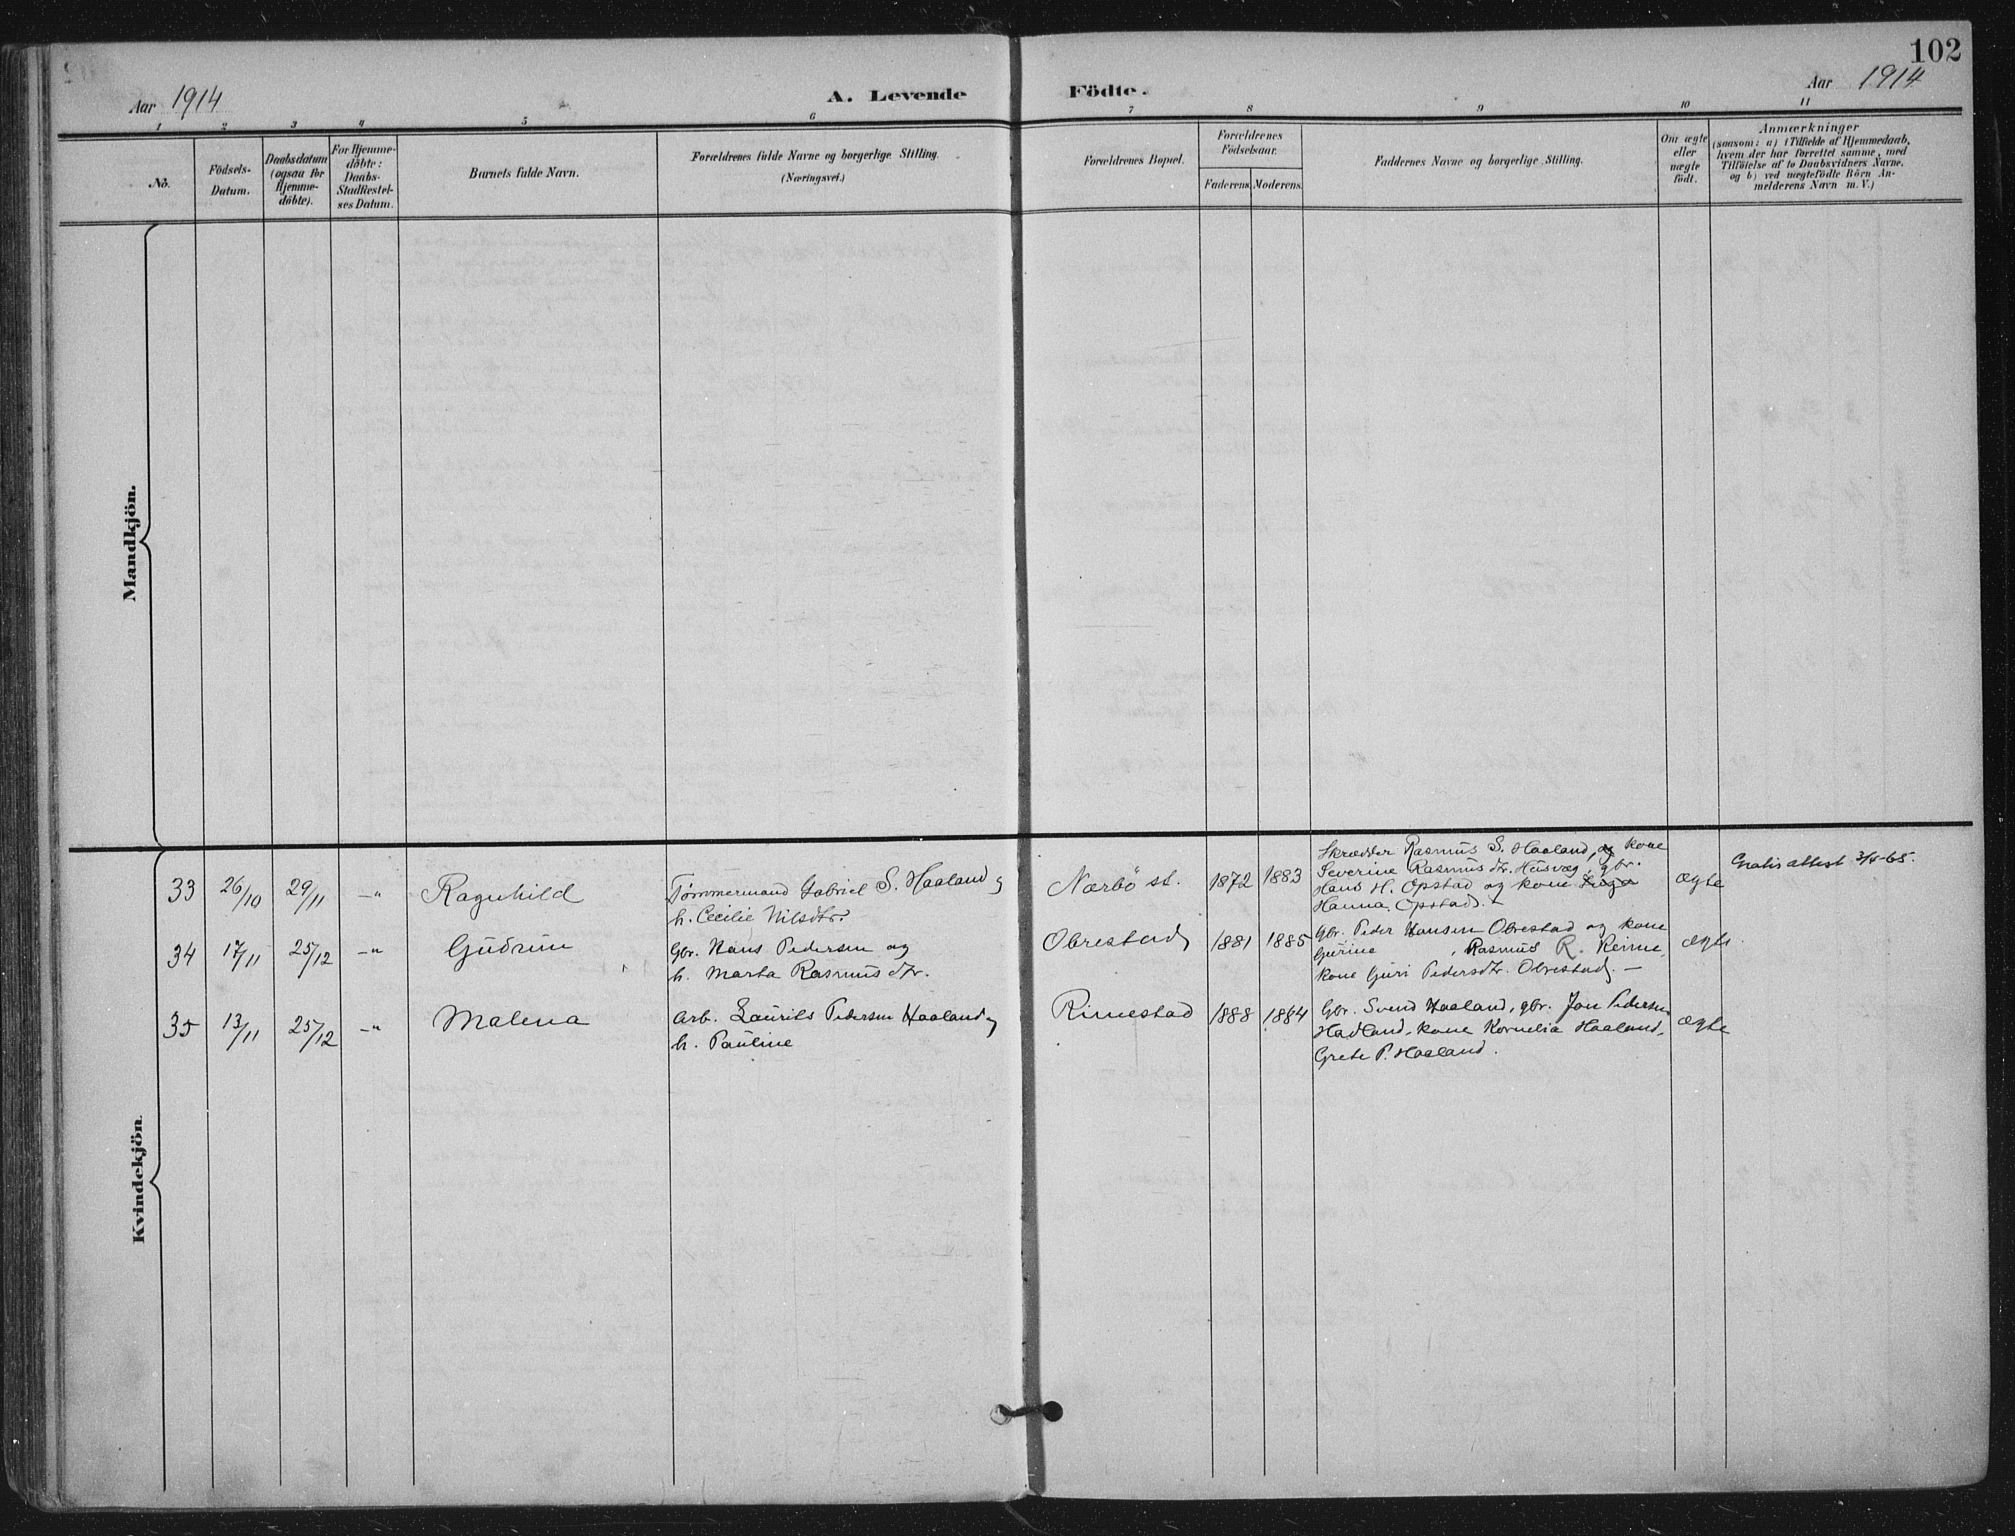 102
Aar 1914
A. Levende Födte.
Aar 1914
1 2 3 4 5 6 7 8 9 10 11
No.
Födsels-
Datum.
Daabsdatum
(ogsaa for
Hjemme-
döbte).
For Hjemme-
döbte:
Daabs-
Stadfæstel-
ses Datum.
Barnets fulde Navn.
Forældrenes fulde Navne og borgerlige Stilling.
(Næringsvei.)
Forældrenes Bopæl.
Forældrenes
Födselsaar.
Faderens. Moderens.
Faddernes Navne og borgerlige Stilling.
Om ægte
eller
uægte
födt.
Anmærkninger
(saasom: a) i Tilfælde af Hjemmedaab,
hvem der har forrettet samme, med
Tilföielse af to Daabsvidners Navne.
og b) ved uægtefödte Börn An-
melderens Navn m. V.)
Mandkjön.
Kvindekjön.
33 26/10 29/11 –"– Ragnhild
Tømmermand Gabriel S. Haaland og
h. Cecilie Nilsdtr.
Nærbö st. 1872 1883
Skrædder Rasmus S. Haaland, og kone
Severine Rasmusdtr. Husveg, gbr.
Hans H. Opstad og kone
Hanna Opstad.
ægte
Gratis attest 3/5-65.
34 17/11 25/12 –"– Gudrun
Gbr. Hans Pedersen og
h. Marta Rasmusdtr.
Obrestad 1881 1885
Gbr. Peder Hansen Obrestad og kone
Gurine, Rasmus R. Reime,
kone Guri Pedersdtr. Obrestad. –
ægte
35 13/11 25/12 –"– Malena
Arb. Laurits Pedersen Haaland og
h. Pauline
Rimestad 1888 1884
Gbr. Svend Haaland, gbr. Jon Pedersen
Hadland, kone Kornelia Haaland,
Grete P. Haaland.
ægte